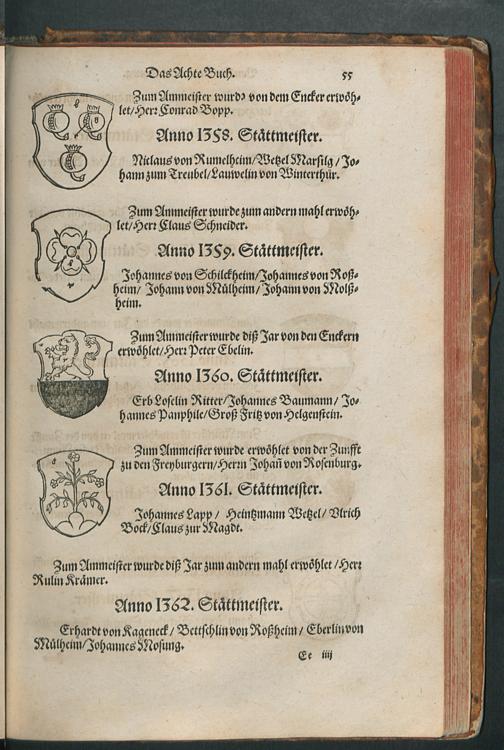 Das Achte Buch. 55
Zum Ammeister wurdꝫ von dem Encker erwöh-
let/Herꝛ Conrad Bopp.
Anno 1358. Stättmeister.
Niclaus von Rumelheim/Wetzel Marsilg/Jo-
hann zum Treubel/Lauwelin von Winterthür.
Zum Ammeister wurde zum andern mahl erwöh-
let/Herꝛ Claus Schneider.
Anno 1359. Stättmeister.
Johannes von Schilckheim/Johannes von Roß-
heim/ Johann von Mülheim/ Johann von Molß-
heim.
Zum Ammeister wurde diß Jar von den Enckern
erwöhlet/Herꝛ Peter Ebelin.
Anno 1360. Stättmeister.
Erb Loselin Ritter/Johannes Baumann/ Jo-
hannes Panphile/Groß Fritz von Helgenstein.
Zum Ammeister wurde erwöhlet von der Zunfft
zu den Freyburgern/Herin Johan̄ von Rosenburg.
Anno 1361. Stättmeister.
Johannes Lapp/ Heintzmann Wetzel/ Vlrich
Bock/Claus zur Magdt.
Zum Ammeister wurde diß Jar zum andern mahl erwöhlet/Herꝛ
Rulin Krämer.
Anno 1362. Stättmeister.
Erhardt von Kageneck/ Bettschlin von Roßheim/ Eberlin von
Mülheim/Johannes Mosung.
Ee iiij